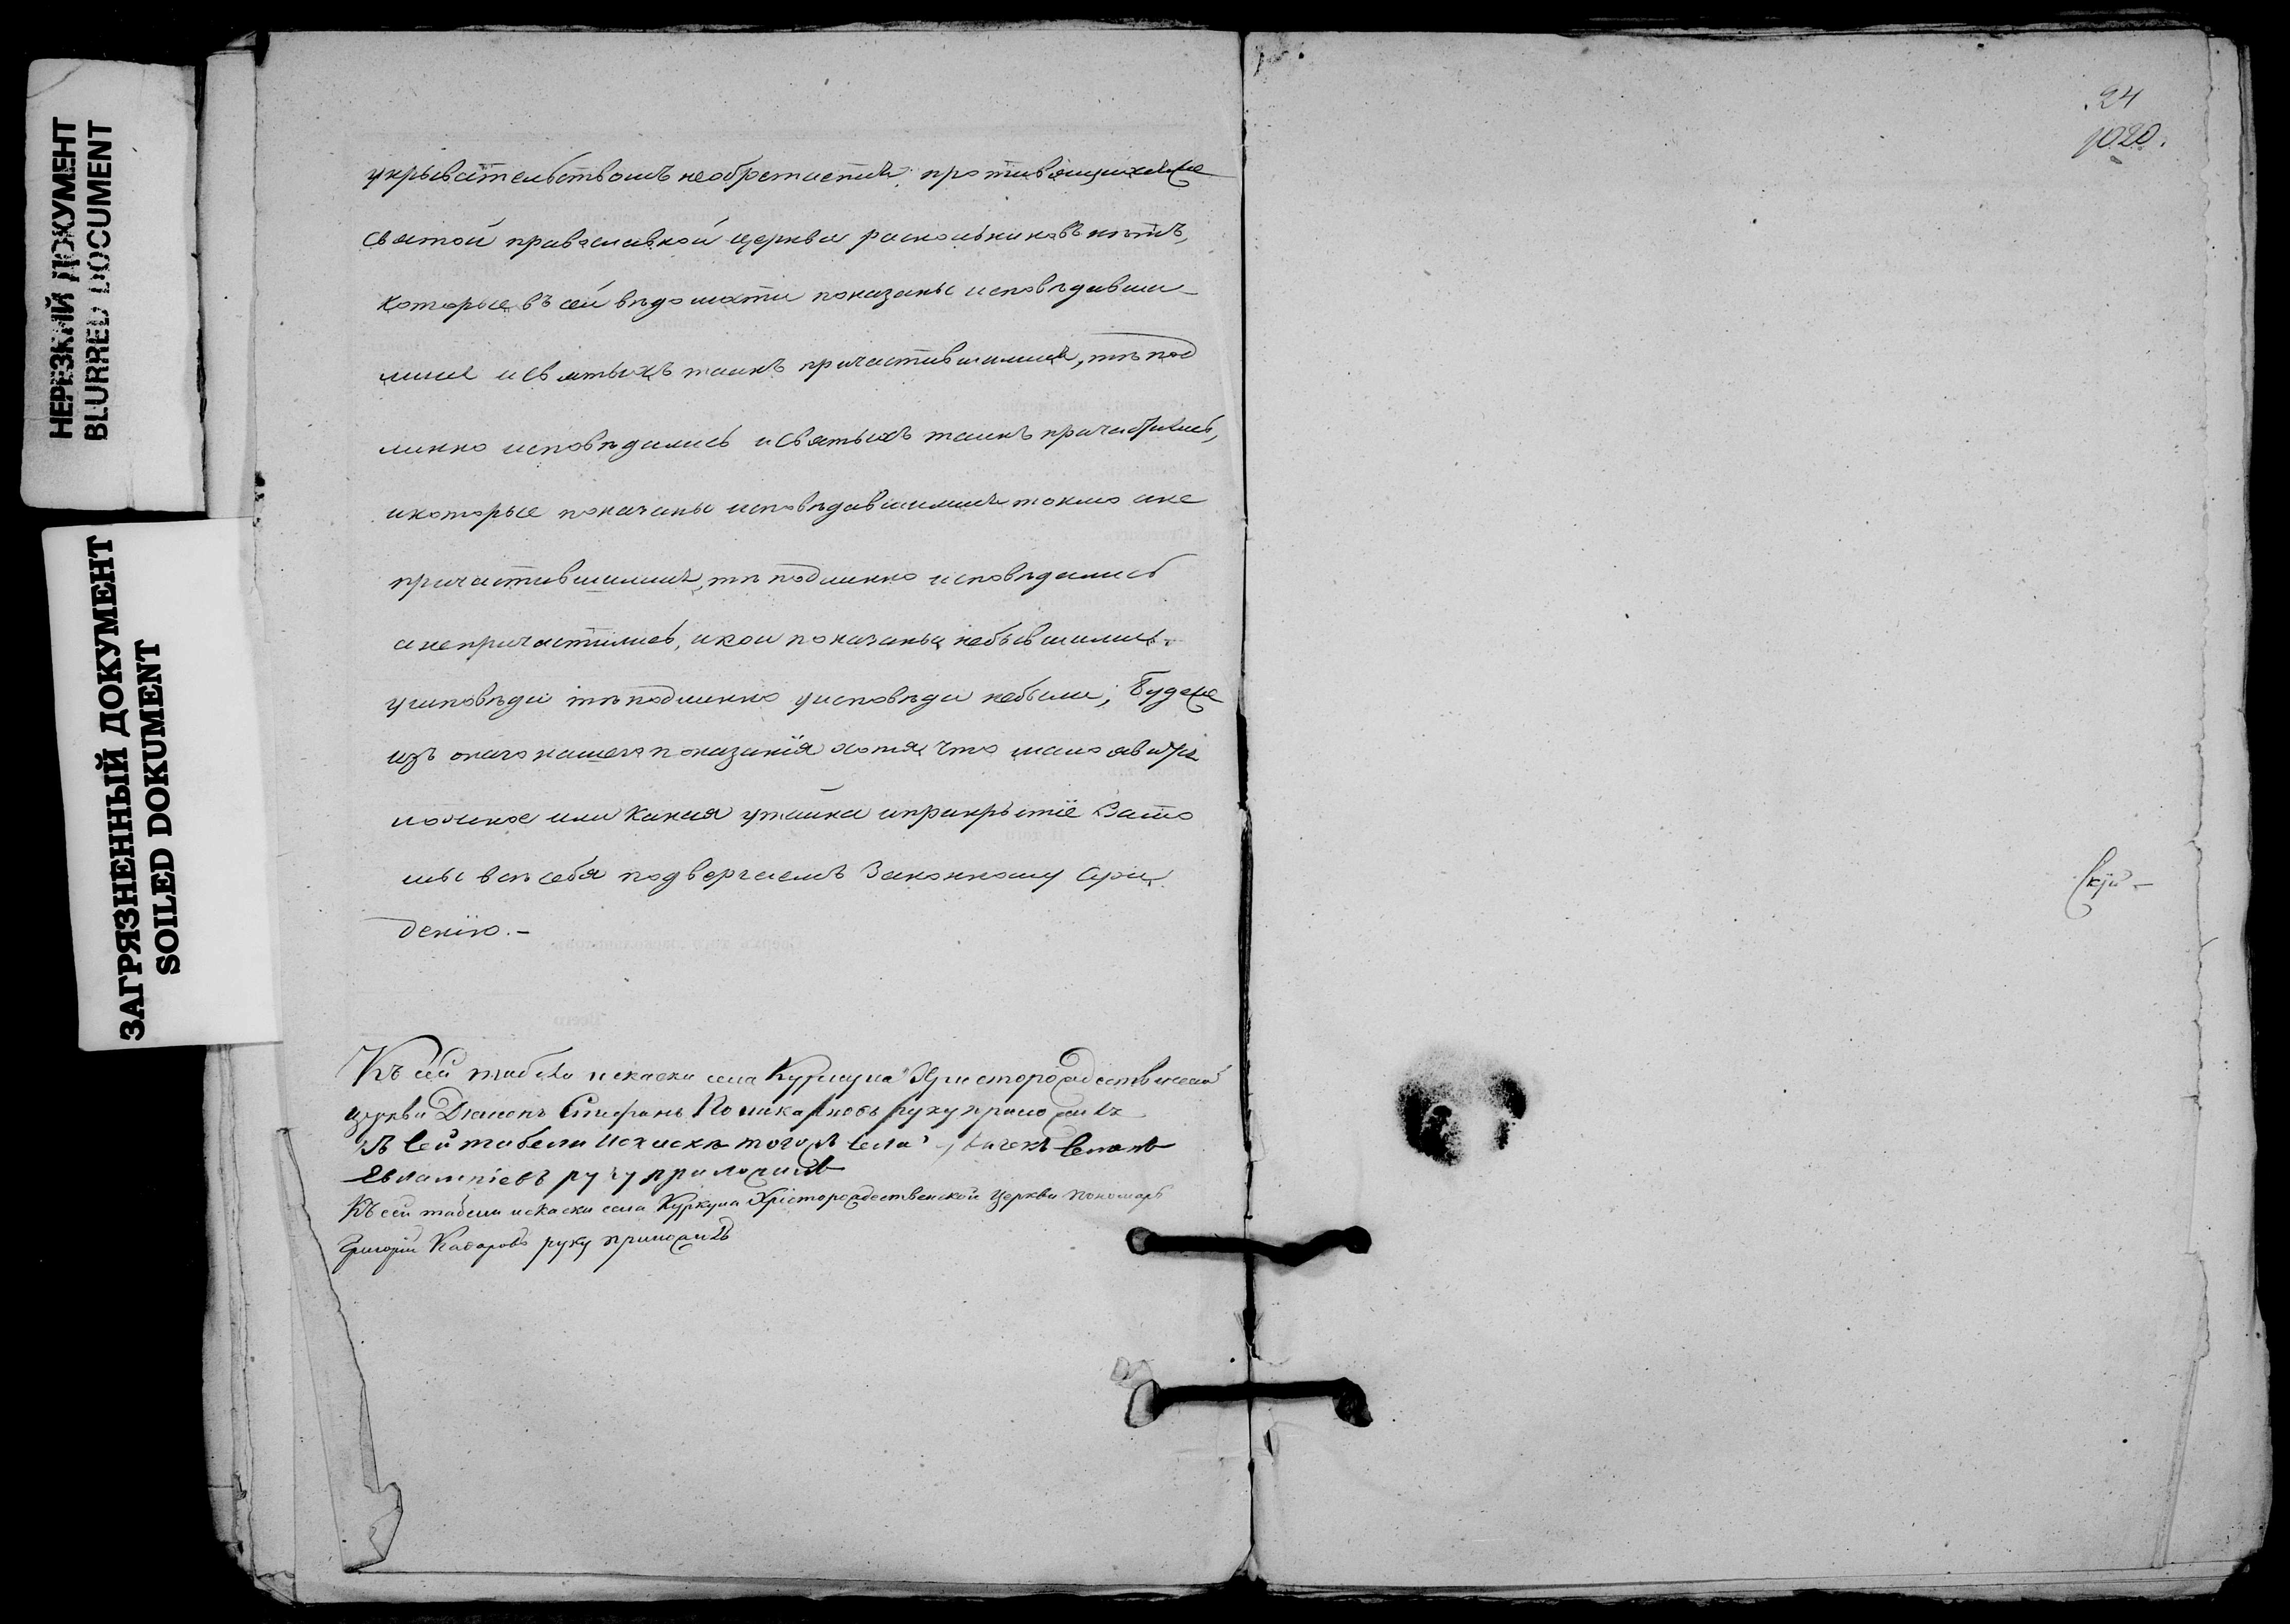 НЕРЕЗКИЙ ДОКУМЕНТ
BLURRED DOCUMENT
ЗАГРЯЗНЕННЫЙ ДОКУМЕНТ
SOILED DOKUMENT
укрывательствомъ необретается, противящихсяже
святой православной церкви раскольниковъ нѣтъ,
которые въ сей вѣдомости показаны исповѣдавши-
мися и святыхъ таинъ причастившимися, тѣ под
линно исповѣдались и святыхъ таинъ причастились,
и которые показаны исповѣдавшимися токмо а не
причастившимися, тѣ подлинно исповѣдались
а непричастились, и кои показаны небывшимись
у исповѣди тѣ подлинно у исповѣди небыли; Будеже
изъ онаго нашего показанїя хотя что мало явится
ложное или какая утайка и прикрытїе Зато
мы всѣ себя подвергаемъ Законному Сужде
денїю.-
Къ сей табели и скаски села Христорождественской
церкви Дьяконъ Стефанъ Поликарповъ руку приложилъ
Къ сей табели и скаскѣ тогожъ села
Евлампїевъ руку приложилъ
Къ сей табели и скаски села Христорождественской церкви пономарь
Григорїй руку приложилъ
24
1020.